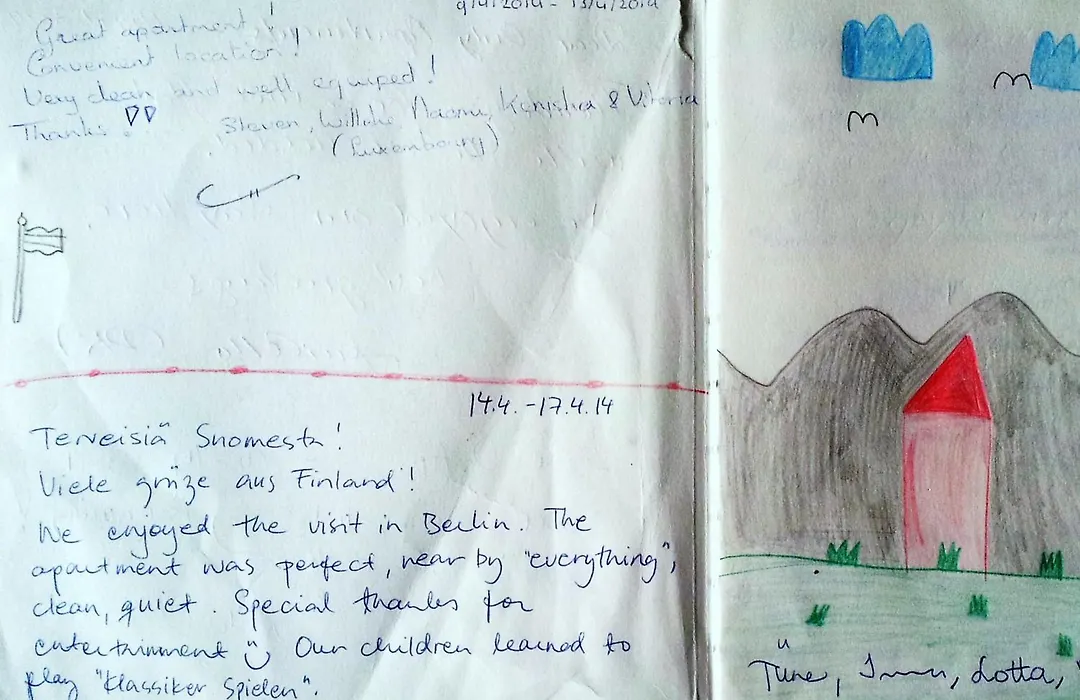 9/4/2014 - 13/4/2014
Great apartment!
Convenient location!
Very clean and well equiped!
Thanks!
Steven, Naomi, & Vitoria
(Luxembourg)
14.4.-17.4.14
Terveisiä Suomesta!
Viele grüze aus Finland!
We enjoyed the visit in Berlin. The
apartment was perfect, near by "everything",
clean, quiet. Special thanks for
entertainment Our children learned to
play "Klassiker Spielen".
Lotta,